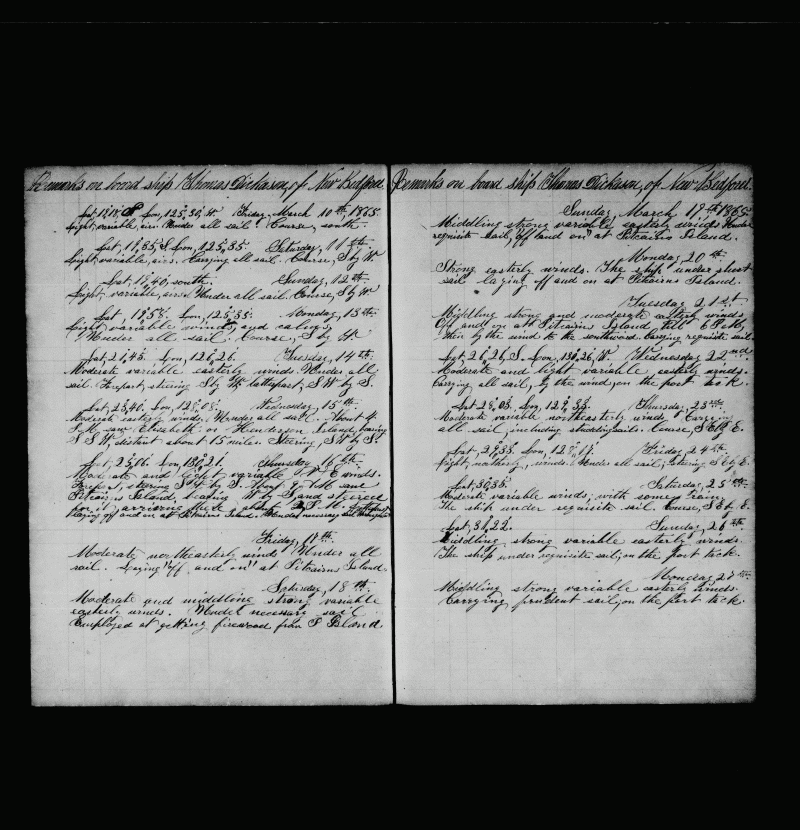 Remarks on board ship Thomas Dickason, of New Bedford
Lat, Lon, 125,30, W Friday, March 10th, 1865
Light, variable, airs. Under all sail. Course, south.
Lat, 19,55 S Lon, 125,35. Saturday, 11th
Light, variable, airs. Carrying all sail. Course, S by W
Lat, 19,40, south. Sunday, 12th
Light, variable, airs. Under all sail. Course, S by W
Lat, 19,58. Lon, 125,35. Monday, 13th
Light variable winds and calms.
Under all sail. Course, S by W
Lat, 21,45. Lon, 126,26. Tuesday, 14th
Moderate variable easterly winds. Under all
sail. Forepart, steering S by W, latterpart, S W by S.
Lat, 23,40. Lon, 128,05. Wednesday, 15th
Moderate easterly winds. Under all sail. About 4
P.M. saw Elizabeth or Henderson Island, bearing
S S W, distant about 15 miles. Steering, S W by S.
Lat, 25,06. Lon, 130,21. Thursday 16th
Moderate and light variable N E winds.
Forepart, steering S W by S. saw
Pitcairns Island, bearing W by S and steered
for it, arriving there about P.M. Latterpart
laying off and on at Pitcairns Island. Under necessary sail
Friday, 17th
Moderate northeasterly winds Under all
sail. Laying "off and on" at Pitcairns Island.
Saturday, 18th
Moderate and middling strong variable
easterly winds. Under necessary sail
Employed at getting firewood from P Island
Remarks on board ship Thomas Dickason, of New Bedford.
Sunday, March 19th 1865
Middling strong variable easterly winds Under
requisite sail, off and on at Pitcairns Island.
Monday 20th
Strong easterly winds. The ship under short
sail laying off and on at Pitcairns Island.
Tuesday 21st
Middling strong and moderate easterly winds
Off and on at Pitcairn Island till 6 P.M,
then by the wind to the southward. Carrying requisite sail.
Lat, 26,26, S. Lon, 130,26, W Wednesday 22nd
Moderate and light variable, easterly winds.
Carrying all sail, by the wind, on the port tack.
Lat 28,03. Lon, 129,33. Thursday 23rd
Moderate variable northeasterly winds, Carrying
all sail, including studdingsails. Course, S E by E.
Lat, 29,33. Lon, 128,11. Friday 24th
Light, northerly, winds. Under all sail, Steering S E by E.
Lat, 30,35. Saturday 25th
Moderate variable winds, with some rain.
The ship under requisite sail. Course, S E by E.
Lat, 31,22. Sunday 26th
Middling strong variable easterly winds.
The ship under requisite sail, on the port tack.
Monday 27th
Middling strong variable easterly winds
Carrying prudent sail, on the port tack.